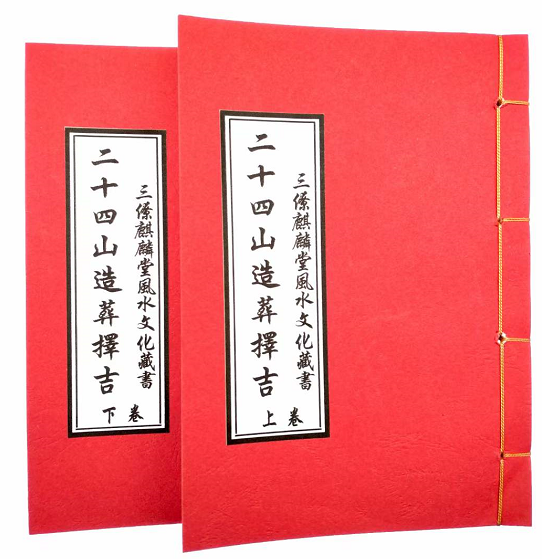 三僚麒麟堂風水文化藏書
二十四山造葬擇吉
上卷
三僚麒麟堂風水文化藏書
二十四山造葬擇吉
下卷